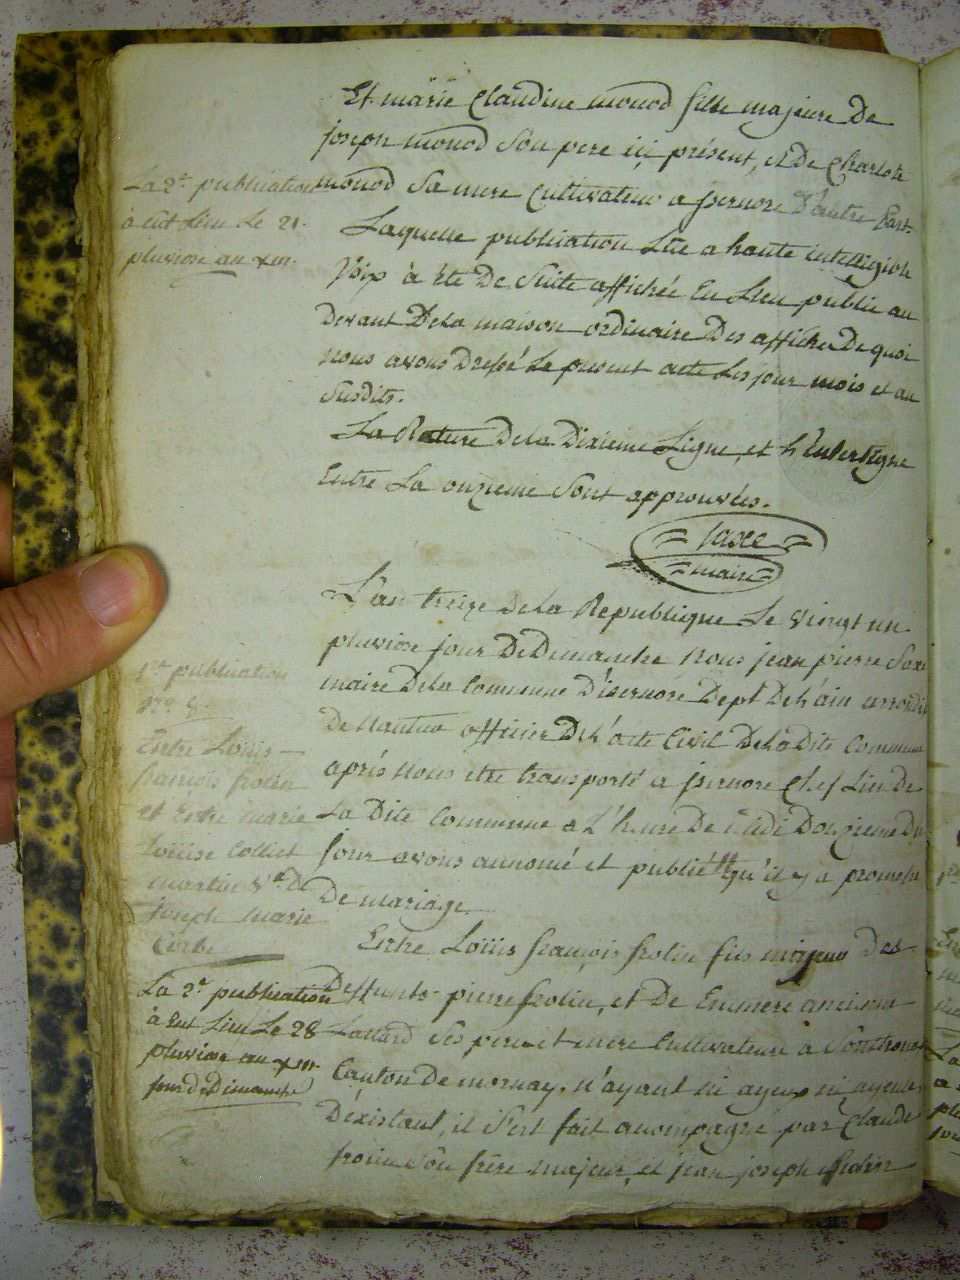 Et marie Claudine monod fille majeure De
joseph monod Son pere ici présent, et De Charlote
monod Sa mere Cultivateur a jsernore D'autre Part.
Laquelle publication Lüe a haute intelligible
Voix à Eté De Suite affichée En Lieu public au
Devant De La maison ordinaire Des affiches De quoi
nous avons Dressé Le present acte Les jour mois et an
Susdits.
La Rature De La Dixieme Ligne, et
Entre La onzieme Sont approuvées.
maire
La 2e publication
à Eut Lieu Le 21.
pluviose an xiii.
L'an treize De La Republique Le Vingt un
pluviose jour De Dimanche Nous jean pierre
maire De La Commune D'isernore Dept De L'ain arrondit
De Nantua officier De L'acte Civil De La Dite Commune
après Nous etre transporté a jsernore Chef Lieu De
La Dite Commune a L'heure De Midi Douzieme Du
jour avons annoncé et publié qu'il y a promesse
De mariage
1re publication
Entre Loüis
francois frolin
et Entre marie
Loüise Colliet
martin Ve De
joseph marie
Entre Loüis françois frolin fils majeur Des
Deffunts pierre frolin, et De
Ses pere et mere Cultivateurs à
Canton De mornay. N'ayant ni ayeux ni ayeules
D'existant, il S'est fait acompagné par Claude
frolin Son frère majeur, et jean joseph frolin
La 2e publication
à Eut Lieu Le 28
pluviose an xiii
jour De Dimanche